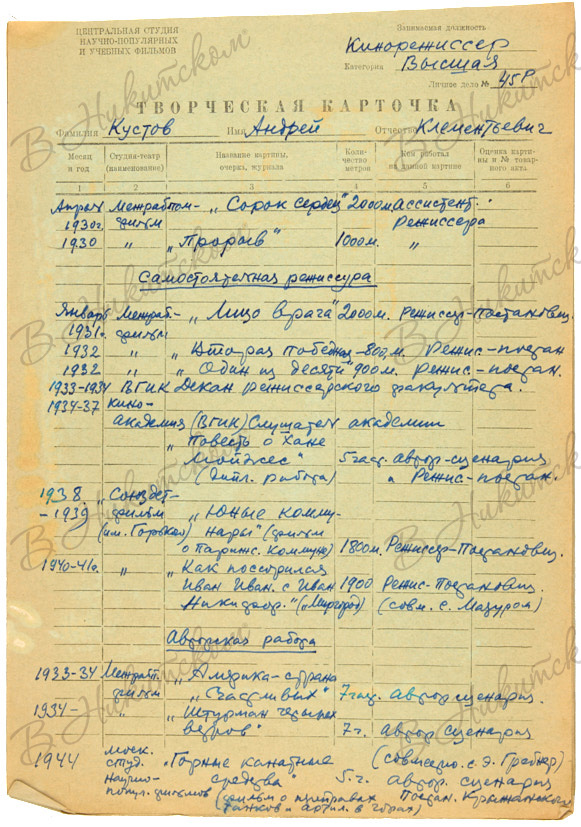 ЦЕНТРАЛЬНАЯ СТУДИЯ
НАУЧНО-ПОПУЛЯРНЫХ
И УЧЕБНЫХ ФИЛЬМОВ
Занимаемая должность
Кинорежиссер
Категория Высшая
Личное дело № 45Р
ТВОРЧЕСКАЯ КАРТОЧКА
Фамилия Кустов Имя Андрей Отчество Клементьевич
Месяц и год Студия-театр (наименование) Название картины, очерка, журнала Количество метров Кем работал на данной картине Оценка картины и № товарного акта
1 2 3 4 5 6
Апрель Межрабпом- „Сорок сердец" 2000м Ассистент
1930г. фильм Режиссера
1930 „ „Прорыв" 1000м. „
Самостоятельная режиссура
Январь Межраб.- „Лицо врага" 2000м. Режиссер-Постановщ.
1931г. фильм
1932 „ „Вторая победа" -800м. Режис.-постан
1932 „ „Один из десяти" 900м. Режис.-постан.
1933-1934 ВГИК Декан режиссерского факультета.
1934-37 Кино-
академия (ВГИК) Слушатель академии
„Повесть о Хане
Мойджес" 5 част. автор-сценария
(дипл. работа) и Режис-постан.
1938. „Союздет-
-1939 фильм „Юные комму-
(им. Горького) нары" (фильм
о Парижс. коммуне) 1800м. Режиссер-Постановщ.
1940-41г. „ „Как поссорился
Иван Иван. с Иван 1900 Режис-Постановщ.
Никифор." („Миргород") (совм. с. Мазуром)
Авторская работа
1933-34 Межраб. „Америка-страна
фильм „Счастливых" 7 час. автор сценария.
1934- „ „Штурман четырех
ветров" 7г. автор сценария
1944 моск. (совместно с Э. Грабнер)
студ. „Горные канатные
научно- средства" 5.г. автор сценария
попул. фильмов (фильм о переправах Постан.
танков и артил. в горах)
В. Никитском